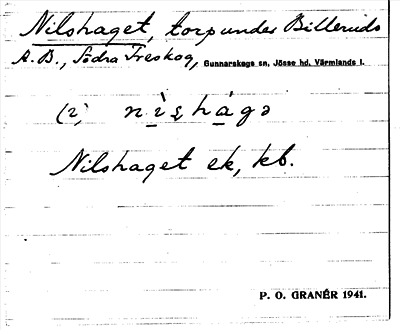 Nilshaget, torp under Billeruds
A.B., Södra Treskog, Gunnarskogs sn, Jösse hd, Värmlands l.
(i) nìʂhágə
Nilshaget ek, kb.
P. O. GRANÉR 1941.